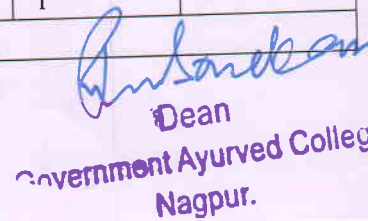 Dean
Government Ayurved Colleg
Nagpur.